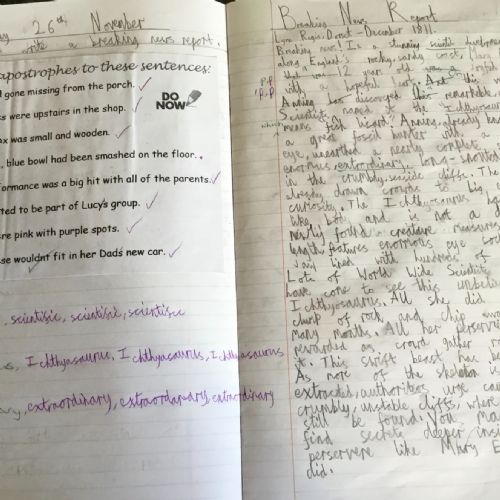 26th November
write a breaking news report.
apostrophes to these sentences:
gone missing from the porch.
were upstairs in the shop.
DO
NOW
was small and wooden.
blue bowl had been smashed on the floor.
ormance was a big hit with all of the parents.
ted to be part of Lucy's group.
re pink with purple spots.
se wouldnt fit in her Dads new car.
scientific, scientific
Ichthyasaurus, Ichthyasaurus, Ichthyasaurus
extraordinary, extraordanary, extraordinary
Breaking News Report
Lyme Regis, Dorset - December 1811
Breaking news! In a stunning
along England's rocky, sandy coast, Mary
that was 12 year old
with a hopeful
Anning has discovered remarkable
Scientist named is the Ichthyosaur
which means fish lizard! Anning, already know
a great fossil hunter with a
eye, unearthed a nearly complete
enormus extraordinary long-snout
in the crumbly, seaside cliffs. The
already drawn crowds to big
curiosity. The Ichthyosaurus
like body and is not a
newly found creature measures
length, features enormous eye
and lined with hundreds of
Lots of World Wide Scientist
have come to see this unbelie
Ichthyosaurus. All she did
chunk of rock and chip awa
many months. All her perserver
rewarded as crowd gather ro
it. This swift beast has be
As more of the skeleton is
extracted, authorities urge cau
crumbly, unstable cliffs, where
still be found. Now
find secrets deeper insi
perservere like Mary
did.